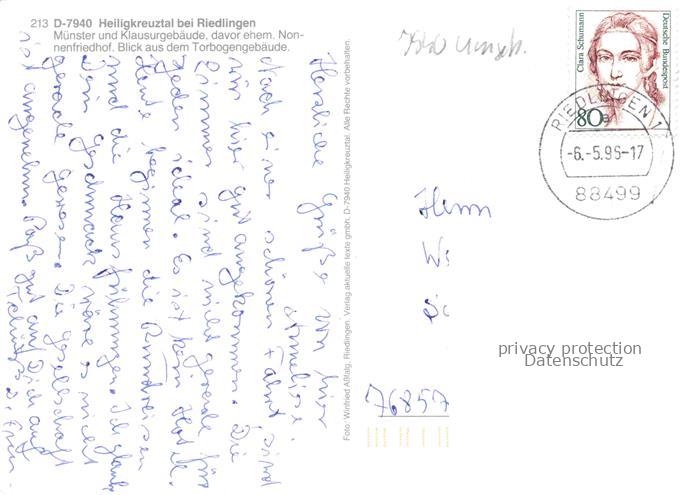 213 D-7940 Heiligkreuztal bei Riedlingen
Münster und Klausurgebäude, davor ehem. Non-
nenfriedhof. Blick aus dem Torbogengebäude.
7940
Clara Schumann
Deutsche Bundespost
80
RIEDLINGEN 1
-6.-5.96-17
88499
Herzliche Grüße von hier
Annelise.
Nach einer schönen Fahrt sind
wir hier gut angekommen. Die
Zimmer sind nicht gerade für
jeden ideal. Es ist kein Hotel.
Heute beginnen die Rundreisen
und die Hausführungen. Ich glaub
Dein Geschmack wäre es nicht
gerade gewesen. Die Gesellschaft
ist angenehm. Paß gut auf Dich auf
Tschüß
Foto: Winfried Aßfalg, Riedlingen. Verlag aktuelle texte gmbh. D-7940 Heiligkreuztal. Alle Rechte vorbehalten.
Herrn
76857
privacy protection
Datenschutz